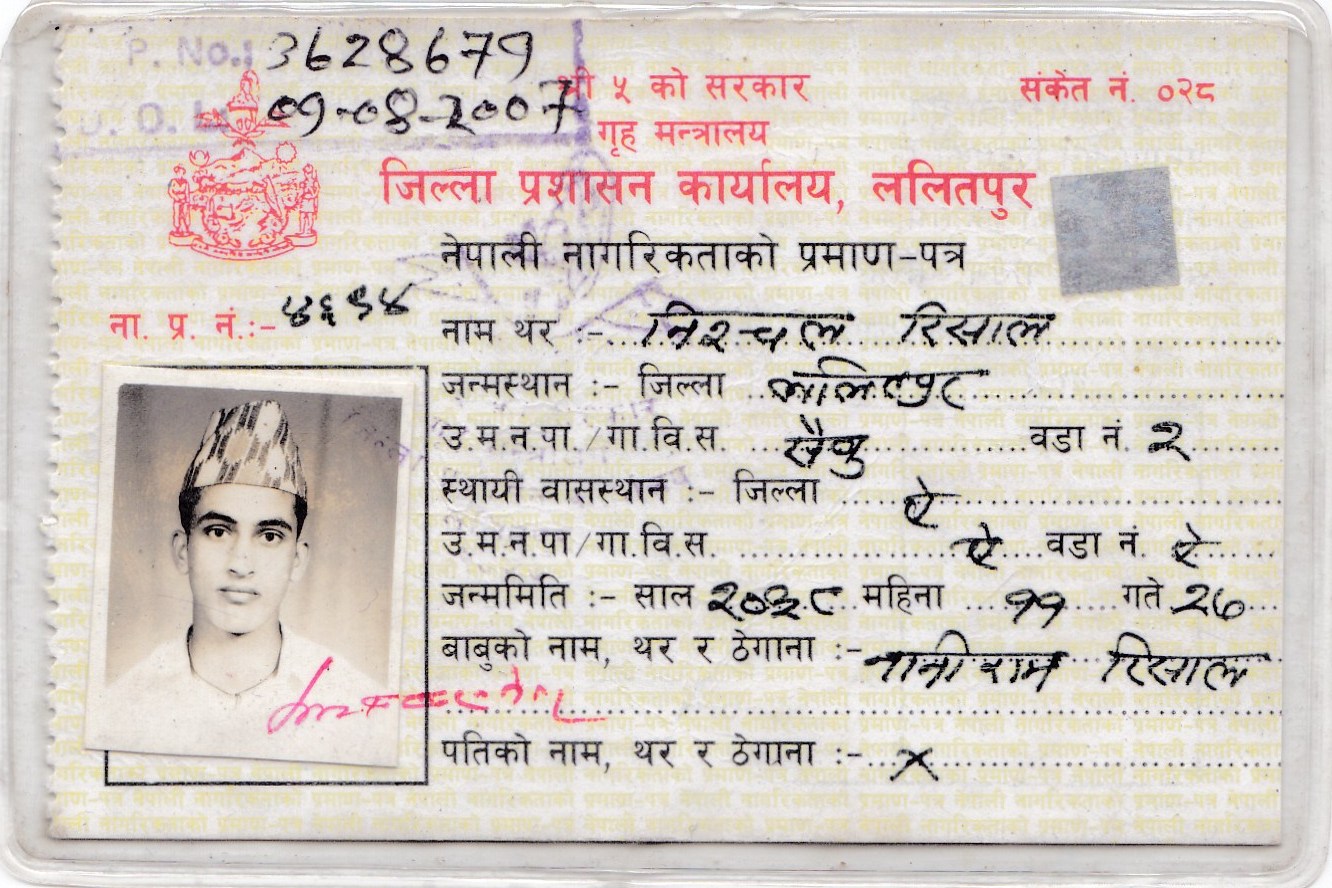 P. No.: 3628679
09-08-2007
श्री ५ को सरकार
संकेत नं. ०२८
गृह मन्त्रालय
जिल्ला प्रशासन कार्यालय, ललितपुर
नेपाली नागरिकताको प्रमाण-पत्र
ना. प्र. नं.:- ४६९४
नाम थर :- निश्चल रिसाल
जन्मस्थान :- जिल्ला ललितपुर
उ.म.न.पा./गा.वि.स. सैंबु वडा नं. २
स्थायी वासस्थान :- जिल्ला ऐ
उ.म.न.पा/गा.वि.स. ऐ वडा नं. ऐ
जन्ममिति :- साल २०३८ महिना ११ गते २७
बाबुको नाम, थर र ठेगाना :- नानीराम रिसाल
पतिको नाम, थर र ठेगाना :- x